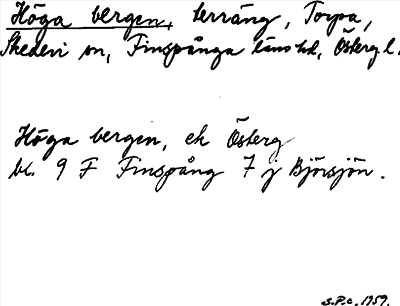 Höga bergen, terräng, Torpa,
Skedevi sn, Finspånga läns hd, Östergl.
Höga bergen, ek Österg
bl. 9 F Finspång 7 j Björsjön.
S.P.c. 1959.